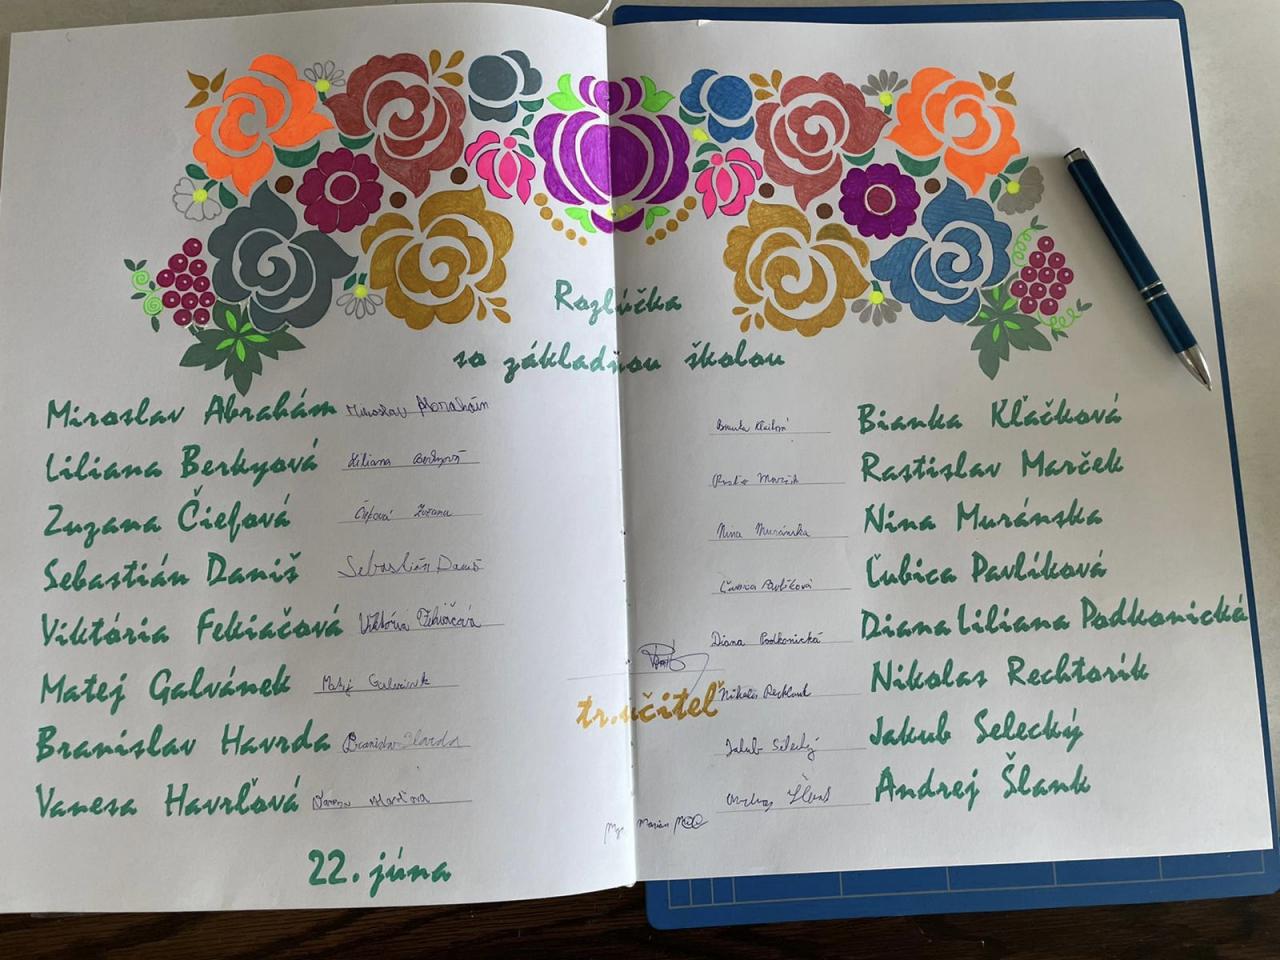 Rozlúčka
so základňou školou
Miroslav Abrahám Miroslav Abrahám
Liliana Berkyová Liliana Berkyová
Zuzana Čiefová Čiefová Zuzana
Sebastián Daniš Sebastián Daniš
Viktória Fekiačová Viktória Fekiačová
Matej Galvánek Matej Galvánek
Branislav Havrda Branislav Havrda
Vanesa Havrľová Vanesa
22. júna
tr.učiteľ
Mgr. Marian
Bianka Kľačková
Marček Rastislav Marček
Nina Muránska Nina Muránska
Ľubica Pavlíková Ľubica Pavlíková
Diana Podkonická Diana Liliana Podkonická
Nikolas Nikolas Rechtorík
Jakub Selecký Jakub Selecký
Andrej Šlank